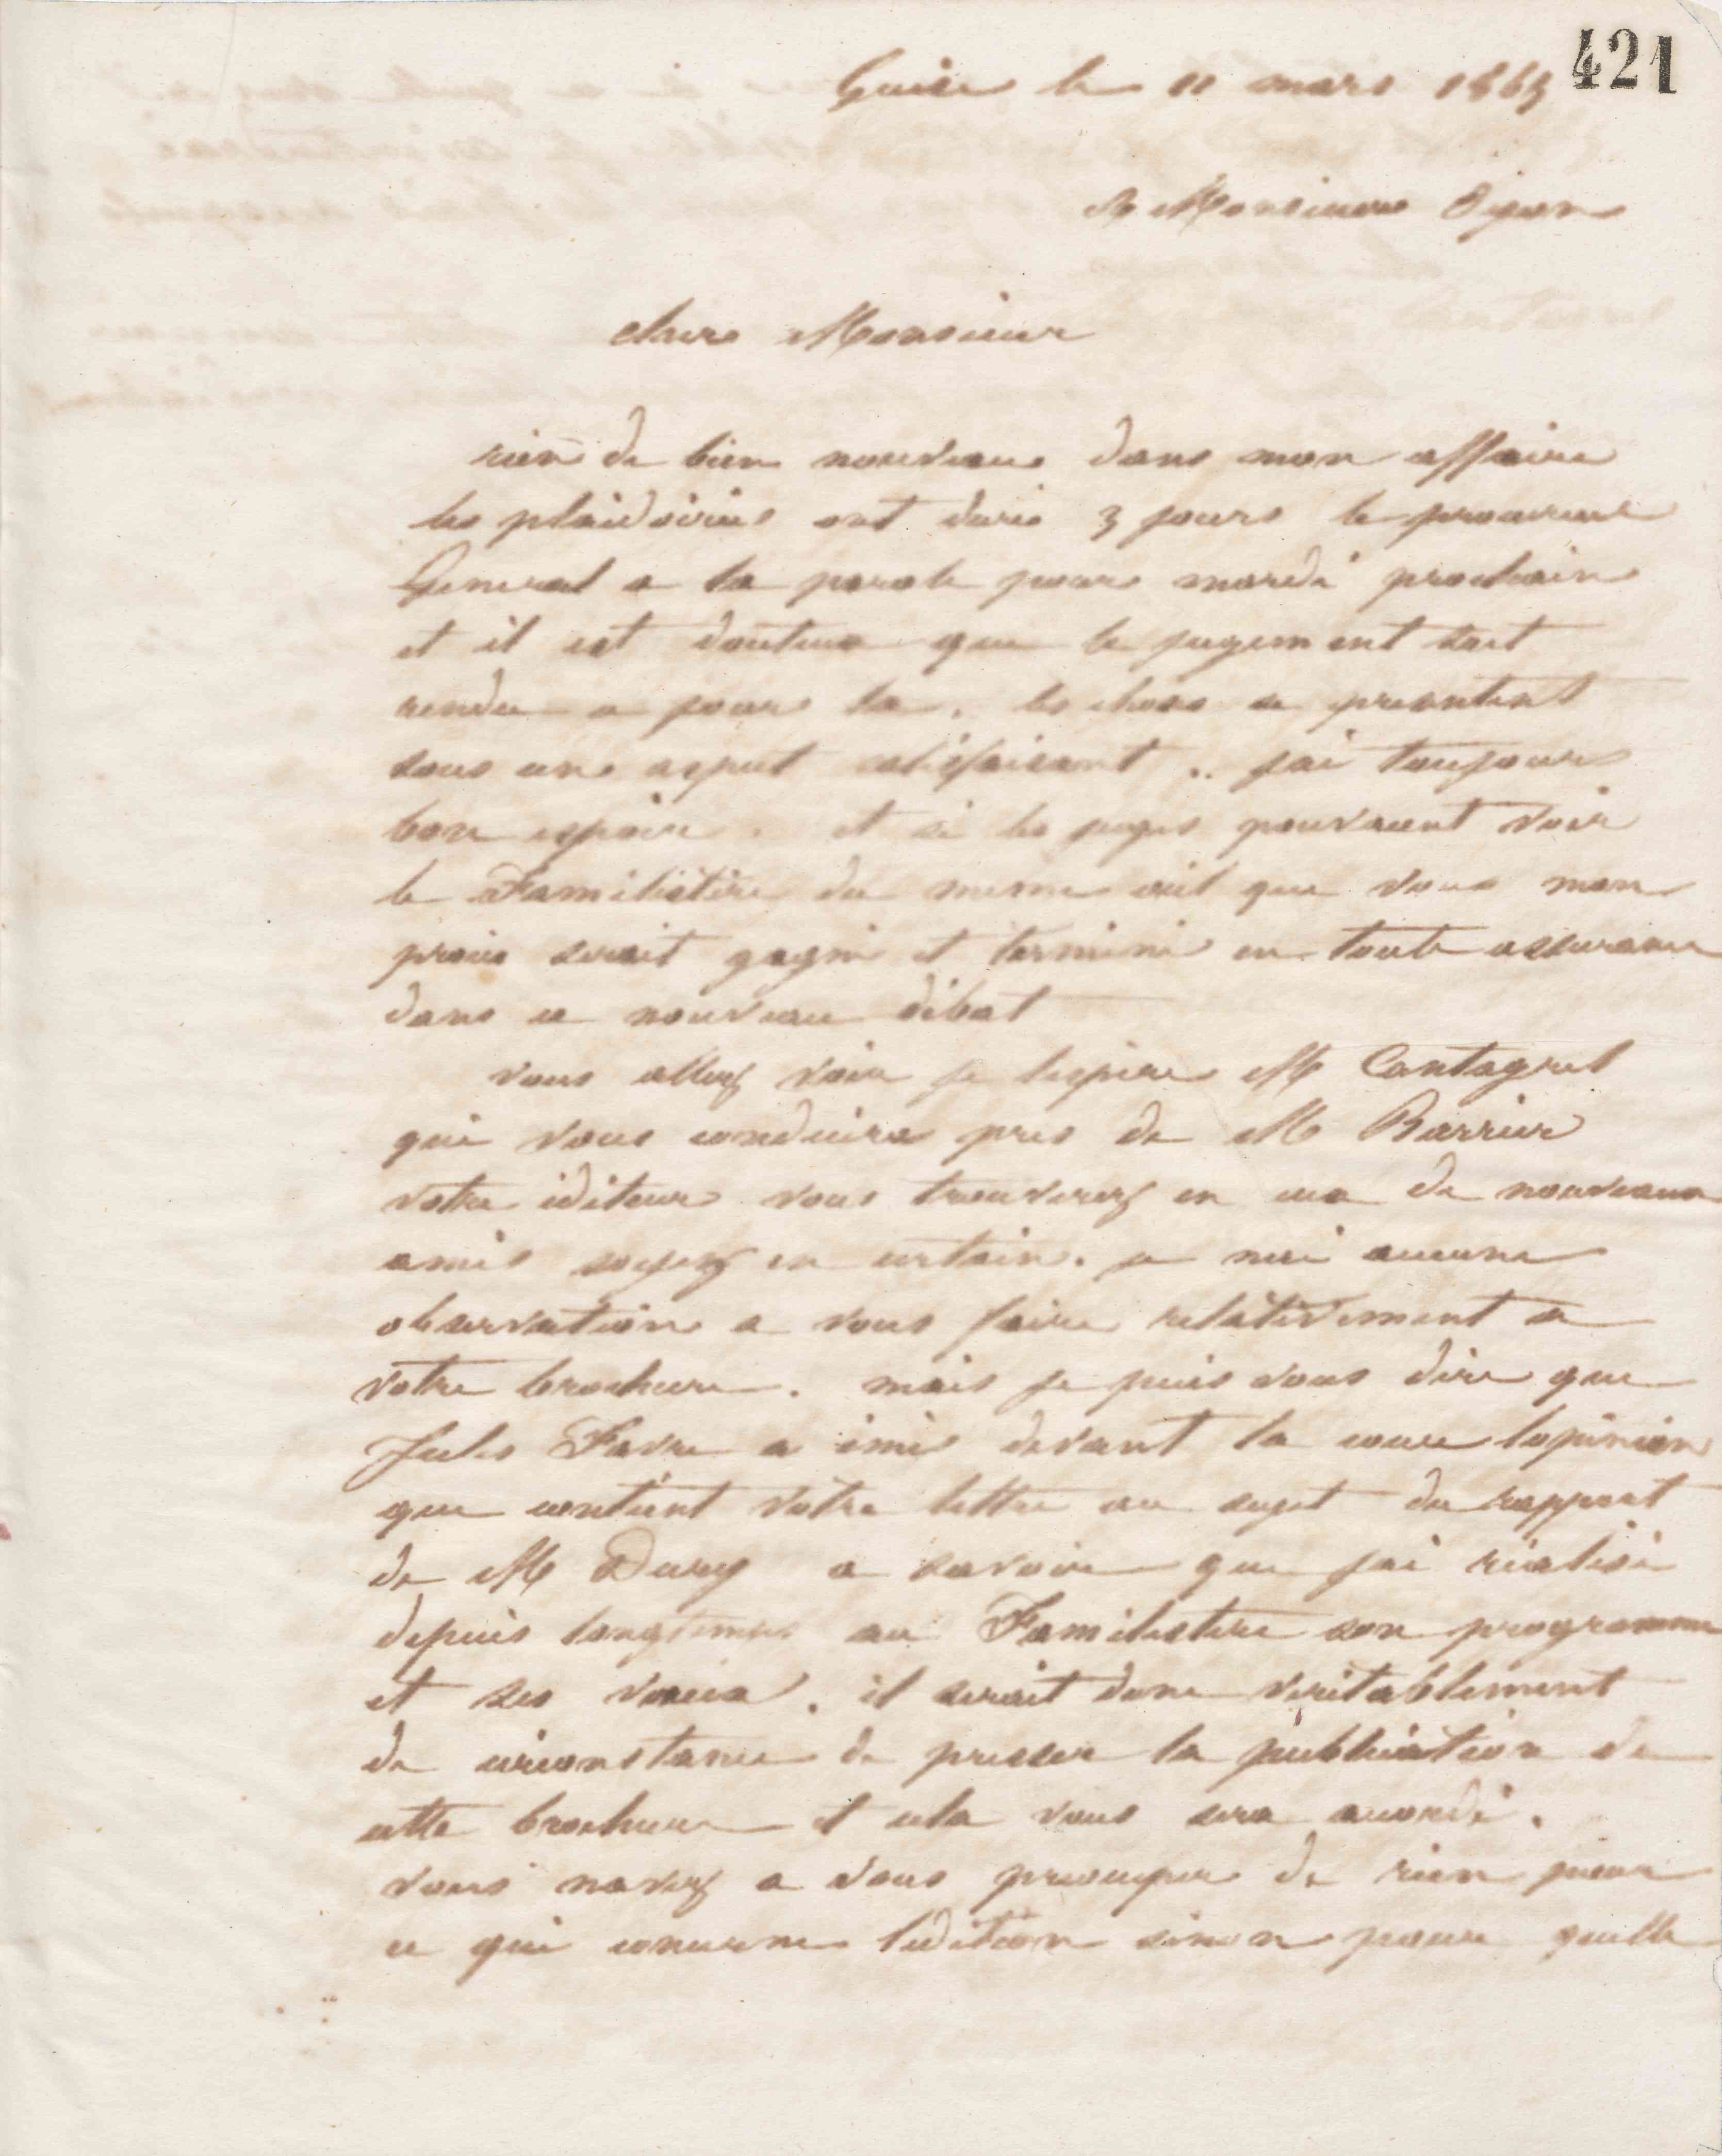 421
Guise le 11 mars 1865
A Monsieur Oyon
cher Monsieur
rien de bien nouveau dans mon affaire
les plaidoiries ont duré 3 jours le procureur
General a la parole pour mardi prochain
et il est douteux que le jugement soit
rendu a jour la. les choses se presentent
sous un aspect satisfaisant .. jai toujours
bon espoir. et si les juges pouvaient voir
le Familistère du meme œil que vous mon
procès serait gagné et terminé en toute assurance
dans ce nouveau débat
vous allez voir je lespère M Cantagrel
qui vous conduira pres de M Barrier
votre éditeur vous trouverez en eux de nouveaux
amis soyez en certain. je nai aucune
observation a vous faire relativement a
votre brochure. mais je puis vous dire que
Jules Favre a émis devant la cour lopinion
que contient votre lettre au sujet du rapport
de M Duruy a savoir que jai réalisé
depuis longtemps au Familistere son programme
et ses vœux. il serait donc veritablement
de circonstance de presser la publication de
cette brochure et cela vous sera accordé.
vous navez a vous preocuper de rien pour
ce qui concerne lédition sinon pour quelle